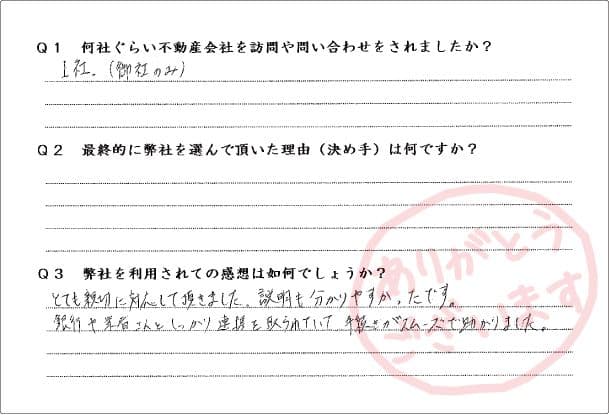 Q1 何社ぐらい不動産会社を訪問や問い合わせをされましたか？
1社．（御社のみ）
Q2 最終的に弊社を選んで頂いた理由（決め手）は何ですか？
Q3 弊社を利用されての感想は如何でしょうか？
とても親切に対応して頂きました。説明も分かりやすかったです。
銀行や業者さんとしっかり連携を取られていて手続きがスムーズで助かりました。
ありがとう
ございます